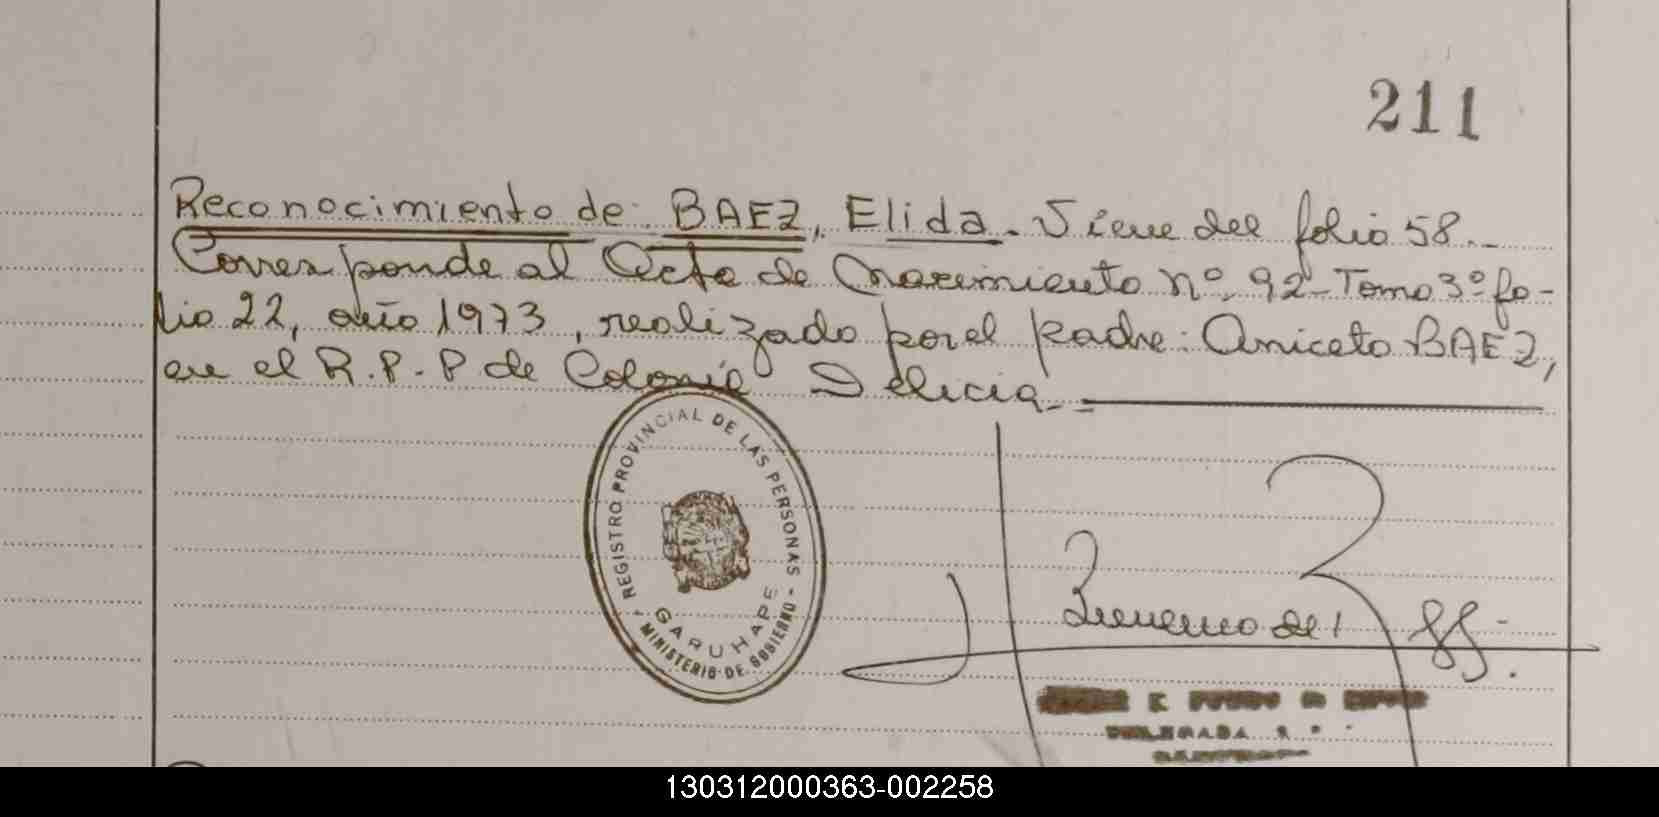 211
Reconocimiento de BAEZ, Elida. Viene del folio 58.-
Corresponde al Acta de Nacimiento nº 92 - Tomo 3º fo-
lio 22, año 1973, realizado por el padre: Aniceto BAEZ,
en el R.P.P de Colonia Delicia.-
REGISTRO PROVINCIAL DE LAS PERSONAS
GARUHAPE
MINISTERIO DE GOBIERNO
de
DELEGADA
130312000363-002258